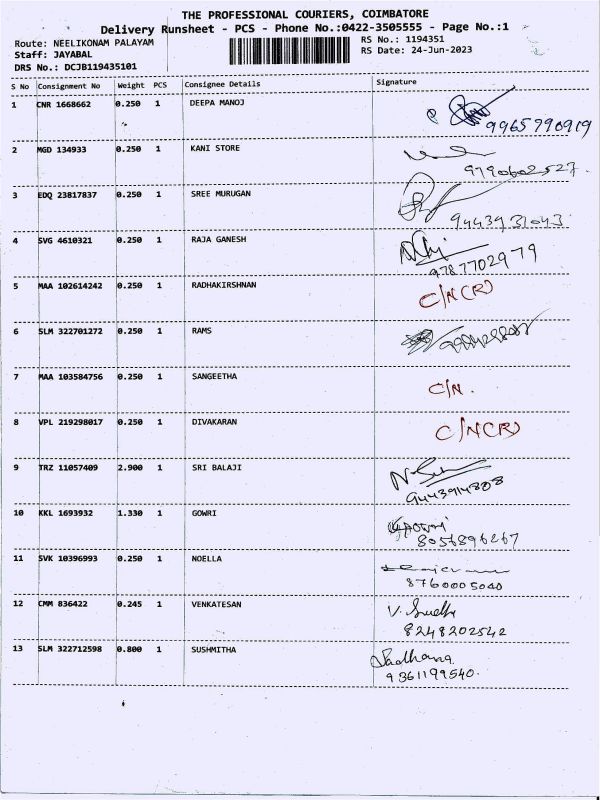 THE PROFESSIONAL COURIERS, COIMBATORE
Delivery Runsheet - PCS - Phone No.:0422-3505555 - Page No.:1
Route: NEELIKONAM PALAYAM
RS No.: 1194351
Staff: JAYABAL
RS Date: 24-Jun-2023
DRS No.: DCJB119435101
S No Consignment No Weight PCS Consignee Details Signature
1 CNR 1668662 0.250 1 DEEPA MANOJ
9965790919
2 MGD 134933 0.250 1 KANI STORE
9790602527
3 EDQ 23817837 0.250 1 SREE MURUGAN
9443931043
4 SVG 4610321 0.250 1 RAJA GANESH
9787702979
5 MAA 102614242 0.250 1 RADHAKIRSHNAN C/N(CR)
6 SLM 322701272 0.250 1 RAMS
7 MAA 103584756 0.250 1 SANGEETHA C/N.
8 VPL 219298017 0.250 1 DIVAKARAN C/N(CR)
9 TRZ 11057409 2.900 1 SRI BALAJI
9443914808
10 KKL 1693932 1.330 1 GOWRI Gowri
8056896267
11 SVK 10396993 0.250 1 NOELLA
8760005040
12 CMM 836422 0.245 1 VENKATESAN V. Sudha
8248202542
13 SLM 322712598 0.800 1 SUSHMITHA Sadhana
9361199540.